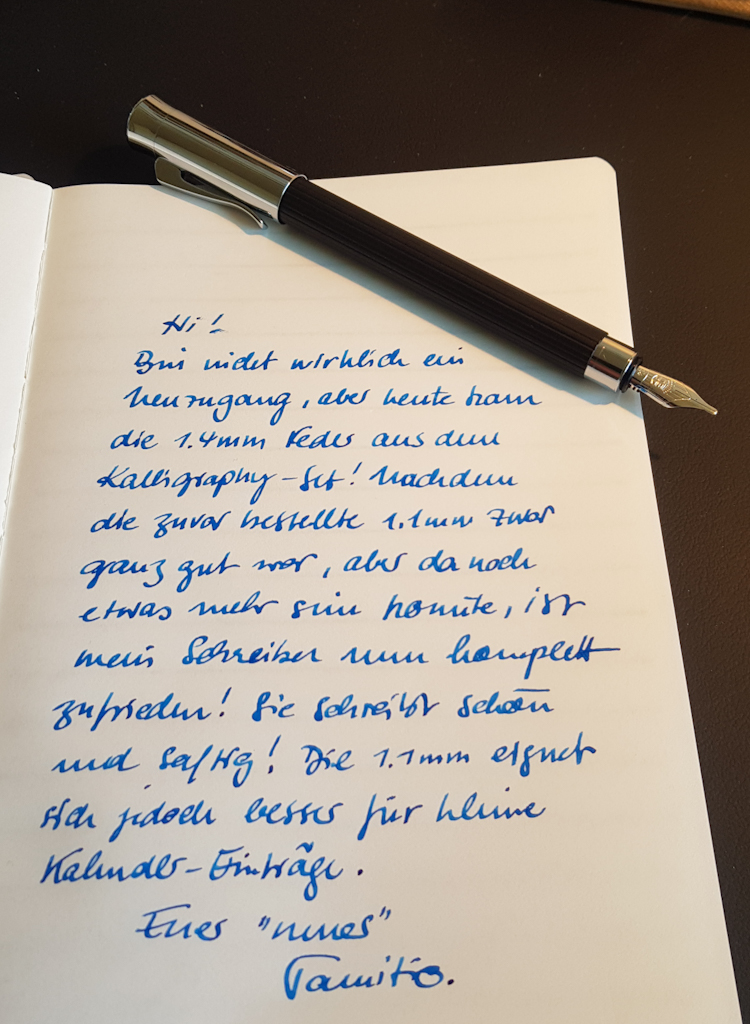 Hi!
Bin nicht wirklich ein
Neuzugang, aber heute kam
die 1.4mm Feder aus dem
Kalligraphy-Set! Nachdem
die zuvor bestellte 1.1mm zwar
ganz gut war, aber da noch
etwas mehr sein konnte, ist
mein Schreiber nun komplett
zufrieden! Sie schreibt schön
und saftig! Die 1.1mm eignet
sich jedoch besser für kleine
Kalender-Einträge.
Euer "neuer"
Tamitio.